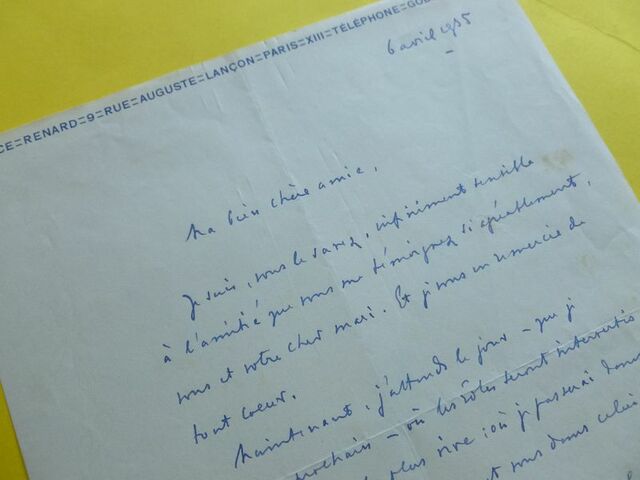 CE=RENARD=9=RUE=AUGUSTE=LANÇON=PARIS=XIII=TÉLÉPHONE=GOB
6 avril 1955
Ma bien chère amie,
Je suis, vous le savez, infiniment sensible
à l'amitié que vous me témoignez si agréablement,
vous et votre cher mari. Et je vous en remercie de
tout coeur.
Maintenant, j'attends le jour - que j
prochain - où les rôles seront intervertis
plus rive : où je passerai dans
vous dans celui